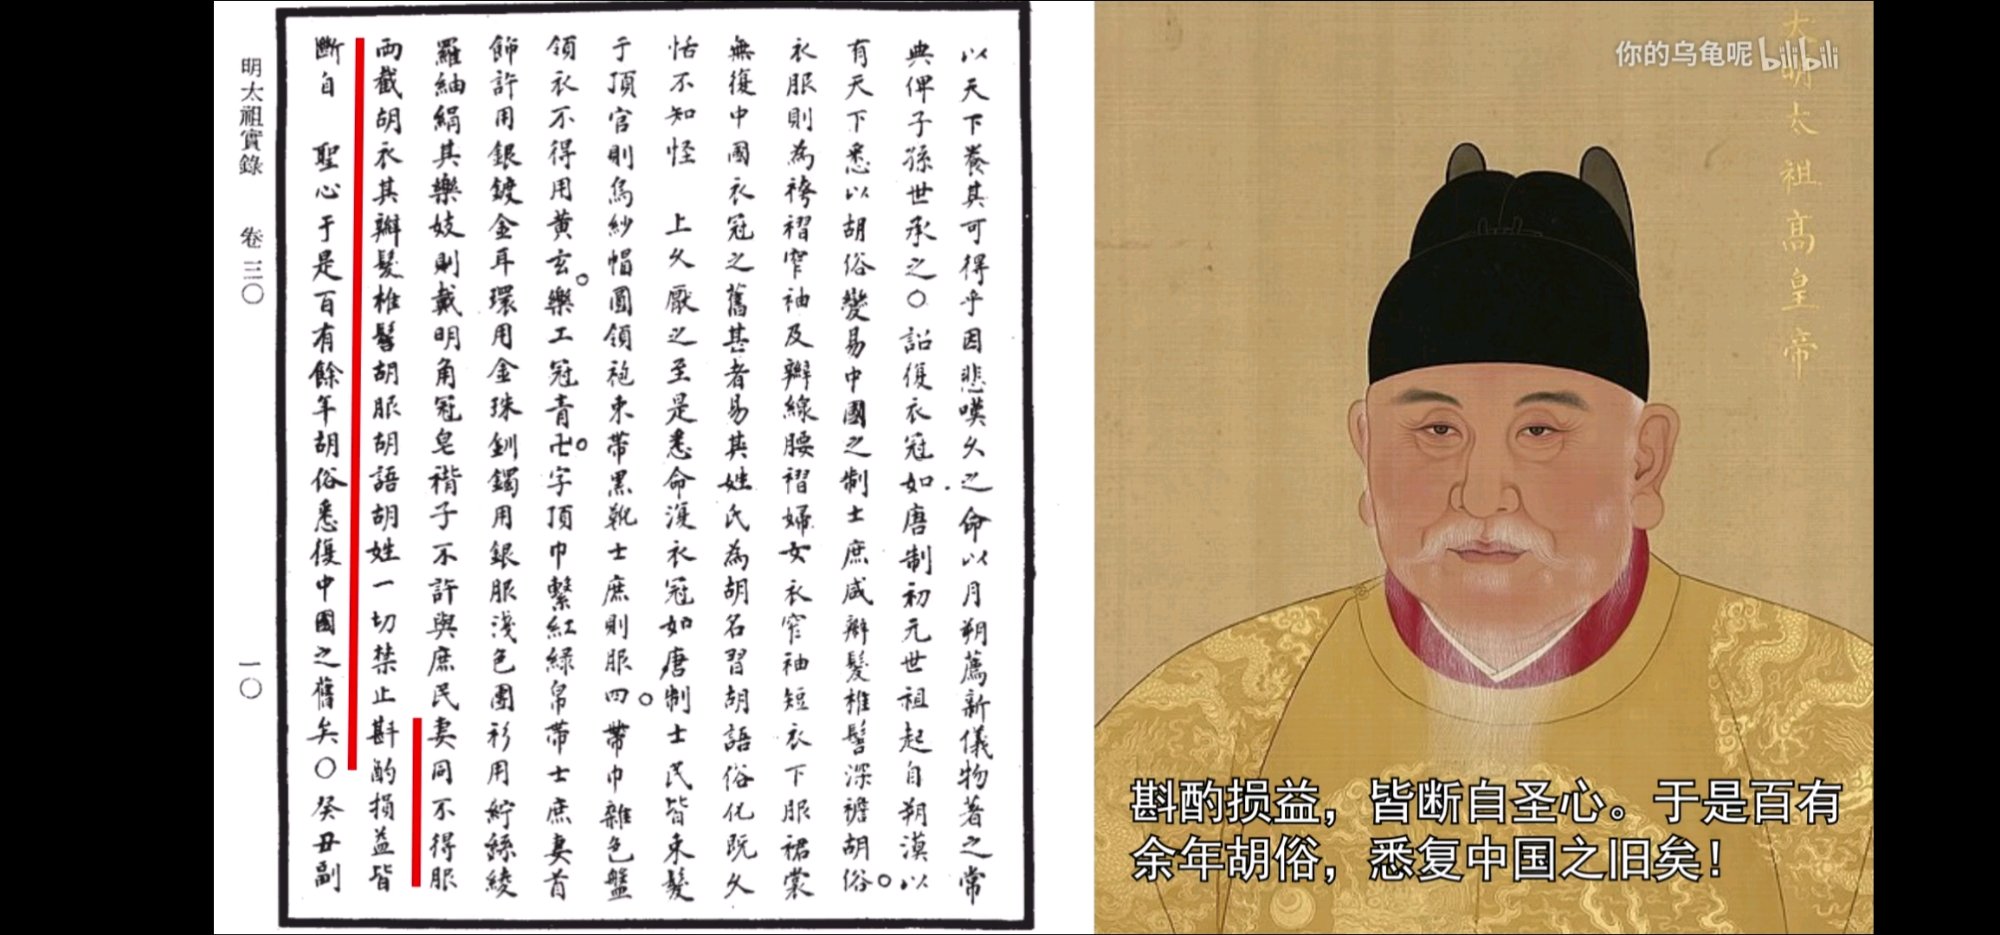 以天下養其可得乎因悲嘆久之命以月朔薦新儀物著之常
典俾子孫世承之○詔復衣冠如唐制初元世祖起自朔漠以
有天下悉以胡俗變易中國之制士庶咸辮髮椎髻深襜胡俗
衣服則為袴褶窄袖及辮線腰褶婦女衣窄袖短衣下服裙裳
無復中國衣冠之舊甚者易其姓氏為胡名習胡語俗化既久
恬不知怪 上久厭之至是悉命復衣冠如唐制士民皆束髮
于頂官則烏紗帽圓領袍束帶黑靴士庶則服四帶巾雜色盤
領衣不得用黃玄樂工冠青卍字頂巾繫紅綠帛帶士庶妻首
飾許用銀鍍金耳環用金珠釧鐲用銀服淺色團衫用紵絲綾
羅紬絹其樂妓則戴明角冠皂褙子不許與庶民妻同不得服
兩截胡衣其辮髮椎髻胡服胡語胡姓一切禁止斟酌損益皆
斷自 聖心于是百有餘年胡俗悉復中國之舊矣○癸丑副
明太祖實錄 卷三○ 一○
大明太祖高皇帝
你的乌龟呢 bilibili
斟酌损益，皆断自圣心。于是百有
余年胡俗，悉复中国之旧矣！